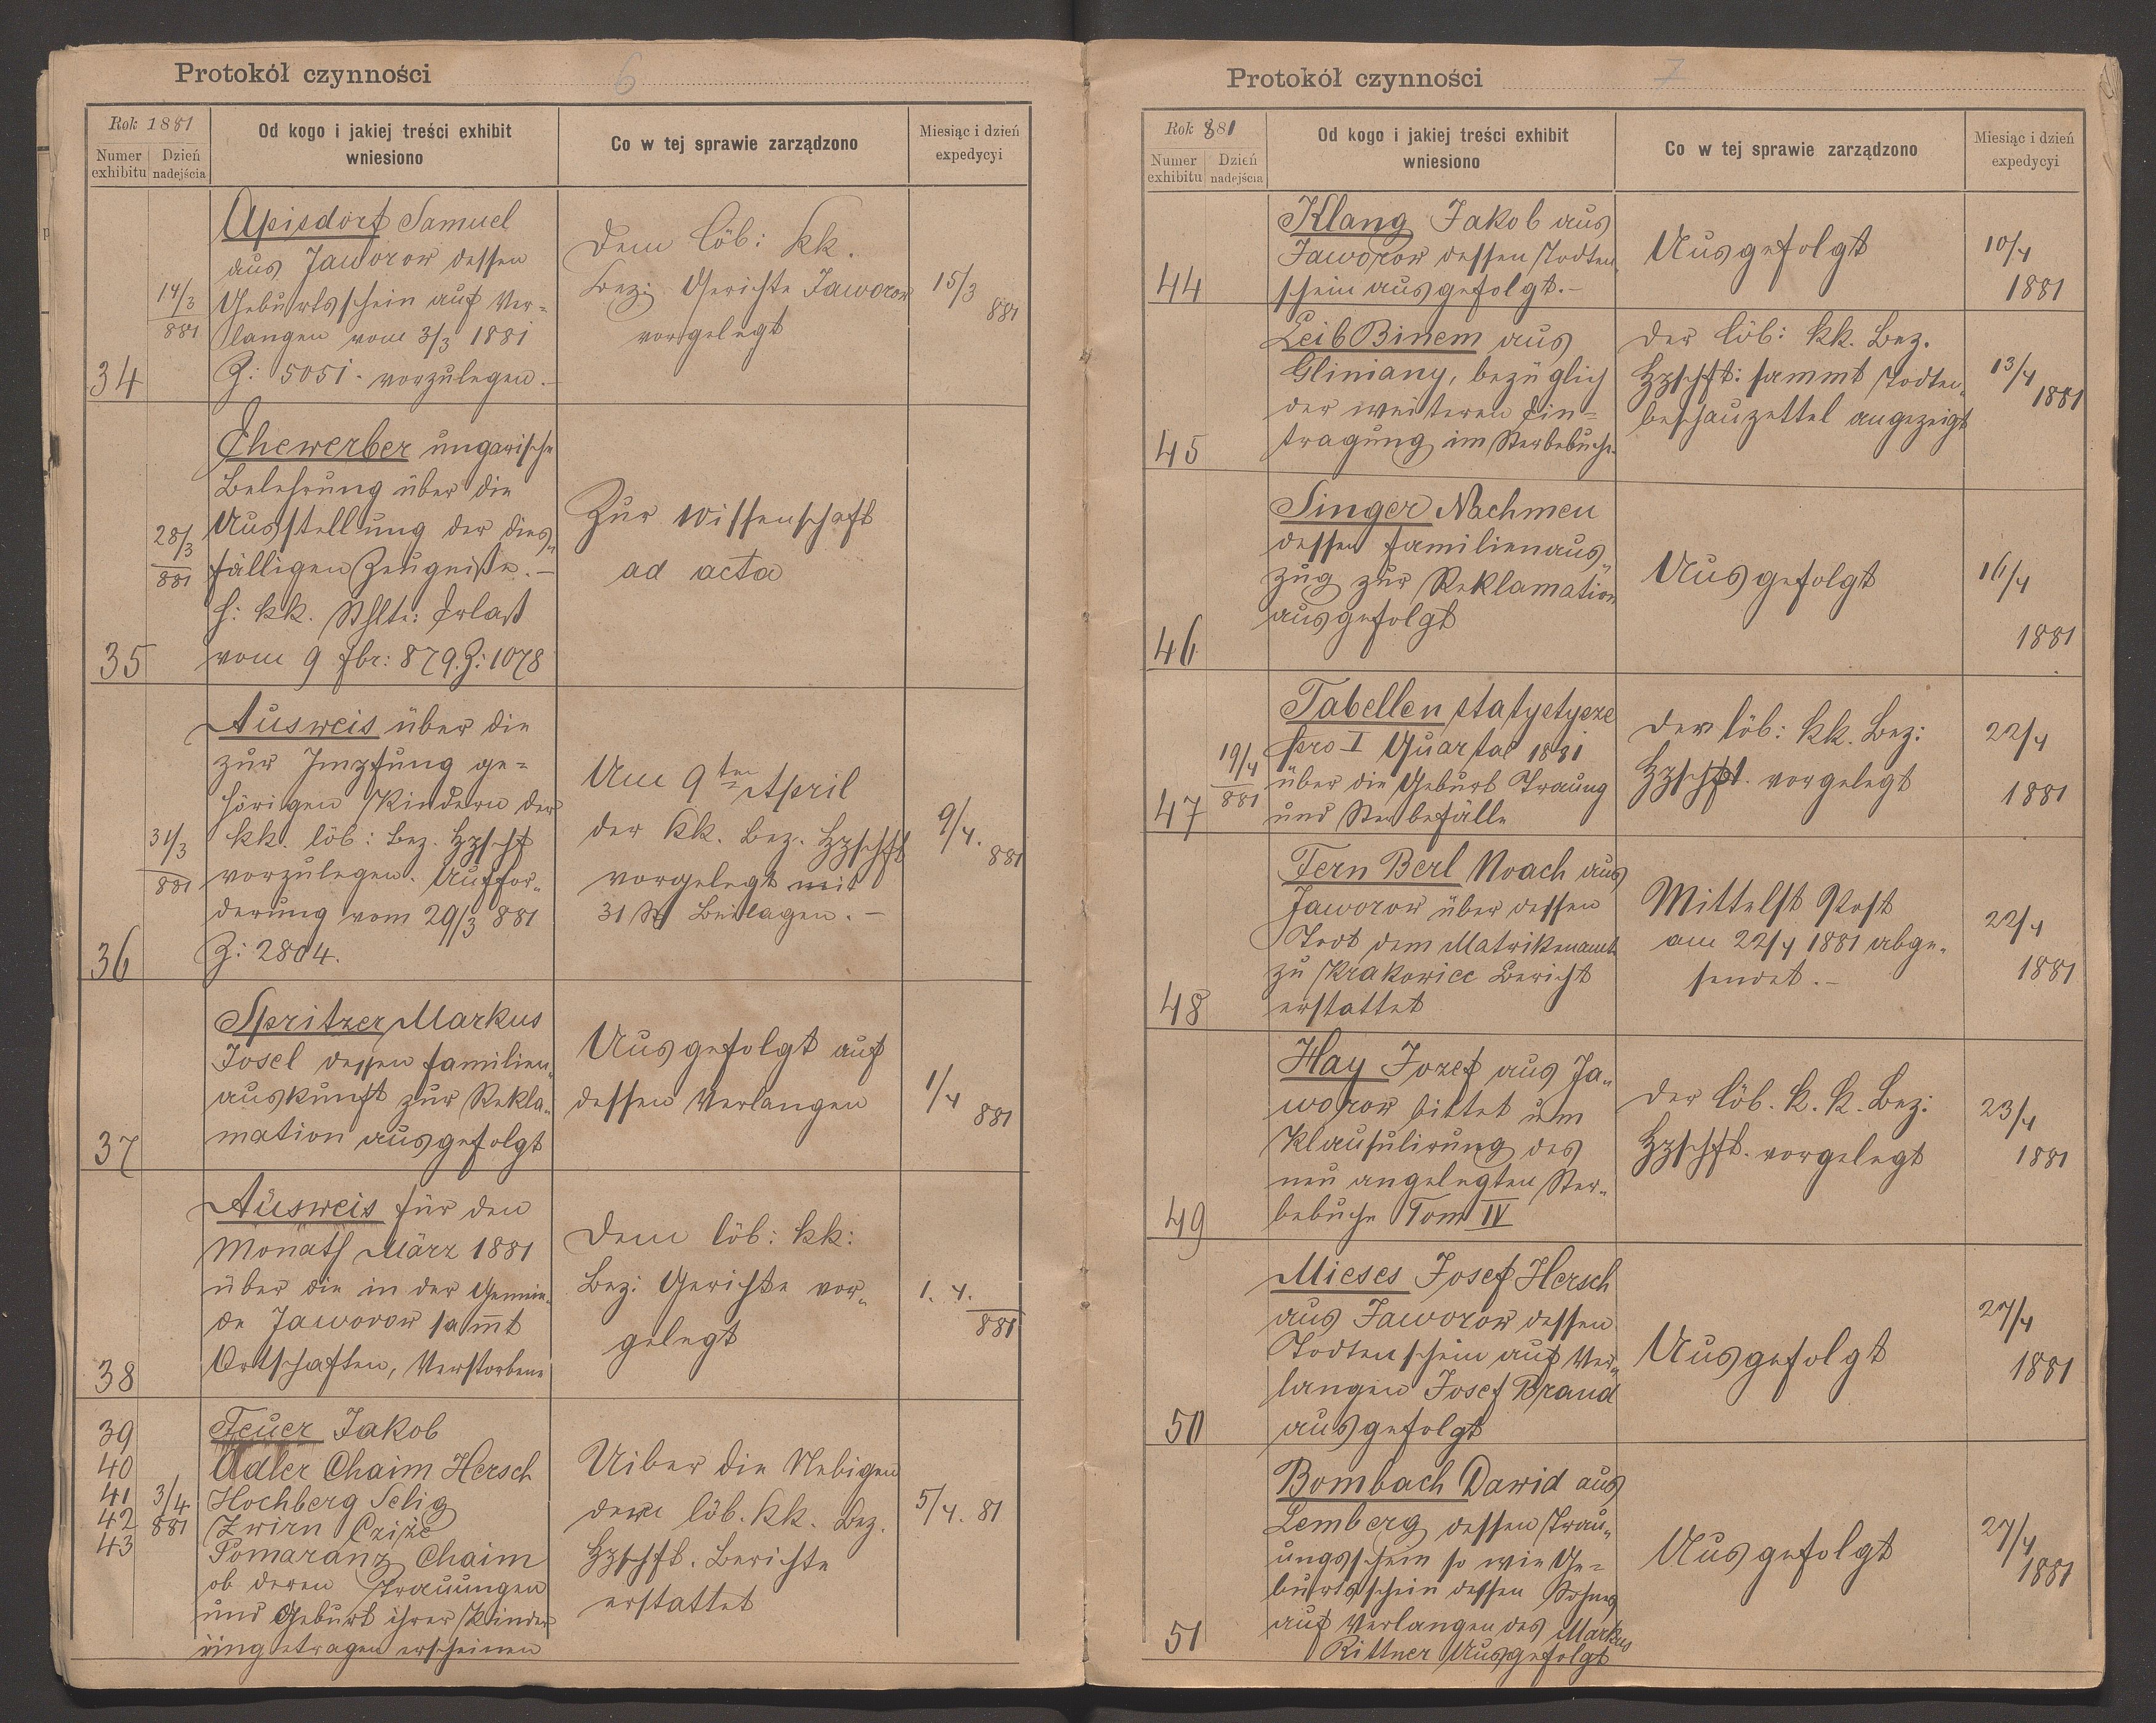 Protokół czynności 6
Rok 1881
Numer exhibitu
Dzień nadejścia
Od kogo i jakiej treści exhibit wniesiono
Co w tej sprawie zarządzono
Miesiąc i dzień expedycyi
34
14/3 881
Apisdorf Samuel
aus Jaworow dessen
Geburtsschein auf Ver-
langen vom 3/3 1881
Z: 5051 vorzulegen.-
Dem löb: kk.
Bez: Gerichte Jaworow
vorgelegt
15/3 881
35
28/3 881
Ehewerber ungarische
Belehrung über die
Ausstellung der dies-
fälligen Zeugniße.-
h: kk. Erlaß
vom 9 879. Z: 1078
Zur Wissenschaft
ad acta
36
31/3 881
Ausweis über die
zur Impfung ge-
hörigen Kindern der
kk. löb: Bez. Hpschft
vorzulegen. Auffor-
derung vom 29/3 881
Z: 2804.
Am 9ten April
der kk. Bez. Hpschft
vorgelegt mit
31 St Beilagen.-
9/4. 881
37
Spritzer Markus
Josel dessen Familien-
auskunft zur Rekla-
mation ausgefolgt
Ausgefolgt auf
dessen Verlangen
1/4 881
38
Ausweis für den
Monath März 1881
über die in der Gemein-
de Jaworow sam̅t
Ortschaften, Verstorbene
Dem löb: kk:
Bez: Gerichte vor-
gelegt
1. 4. 881
39
40
41
42
43
3/4. 881
Feuer Jakob
Adler Chaim Hersch
Hochberg Selig
Zwirn
Pomaranz Chaim
ob deren Trauungen
und Geburt ihrer Kinder
eingetragen erscheinen
Uiber die Nebigen
dem löb. kk. Bez.
Hpschft. Berichte
erstattet
5/4. 81
Protokół czynności 7
Rok 881
Numer exhibitu
Dzień nadejścia
Od kogo i jakiej treści exhibit wniesiono
Co w tej sprawie zarządzono
Miesiąc i dzień expedycyi
44
Klang Jakob aus
Jaworow dessen Todten-
schein ausgefolgt.-
Ausgefolgt
10/4
1881
45
Leib Binem aus
Gliniany, bezüglich
der weiteren Ein-
tragung im Sterbebuche
Der löb: kk. Bez.
Hpschft: sammt Todten-
beschauzettel angezeigt
13/4 1881
46
Singer Nachmen
dessen Familienaus-
zug zur Reklamation
ausgefolgt
Ausgefolgt
16/4
1881
47
19/4 881
Tabellen statystycze
pro I Quartal 1881
über die Geburt Trauung
und Sterbefälle
Der löb: kk. Bez:
Hpschft. vorgelegt
22/4
1881
48
Fern Berl Noach aus
Jaworow über dessen
Todt dem Matrikenamte
zu Krakowiec Bericht
erstattet
Mittelst Post
am 22/4 1881 abge-
sendet.-
22/4
1881
49
Hay Jozef aus Ja-
worow bittet um
Klausulirung des
neu angelegten Ster-
bebuche Tom IV
Der löb. k. k. Bez:
Hpschft. vorgelegt
23/4
1881
50
Mieses Josef Hersch
aus Jaworow dessen
Todtenschein auf Ver-
langen Josef Brand
ausgefolgt
Ausgefolgt
27/4
1881
51
Bombach Dawid aus
Lemberg dessen Trau-
ungsschein so wie Ge-
burtsschein dessen Sohnes
auf Verlangen des Markus
Rittner Ausgefolgt
Ausgefolgt
27/4
1881